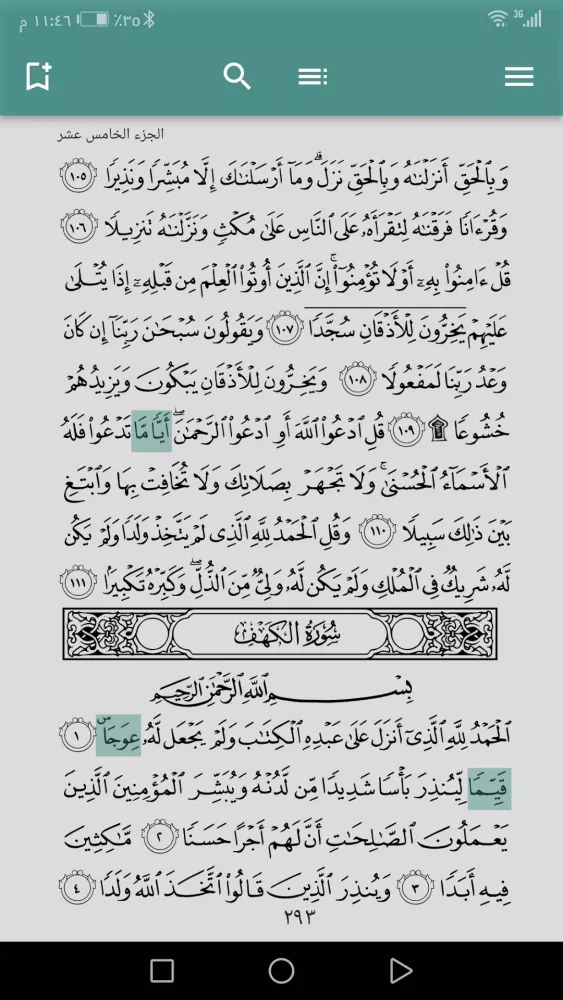 م ١١:٤٦ ٪٣٥ 3G
الجزء الخامس عشر
وَبِٱلۡحَقِّ أَنزَلۡنَٰهُ وَبِٱلۡحَقِّ نَزَلَۗ وَمَآ أَرۡسَلۡنَٰكَ إِلَّا مُبَشِّرٗا وَنَذِيرٗا ١٠٥
وَقُرۡءَانٗا فَرَقۡنَٰهُ لِتَقۡرَأَهُۥ عَلَى ٱلنَّاسِ عَلَىٰ مُكۡثٖ وَنَزَّلۡنَٰهُ تَنزِيلٗا ١٠٦
قُلۡ ءَامِنُواْ بِهِۦٓ أَوۡ لَا تُؤۡمِنُوٓاْۚ إِنَّ ٱلَّذِينَ أُوتُواْ ٱلۡعِلۡمَ مِن قَبۡلِهِۦٓ إِذَا يُتۡلَىٰ
عَلَيۡهِمۡ يَخِرُّونَ لِلۡأَذۡقَانِ سُجَّدٗا ١٠٧ وَيَقُولُونَ سُبۡحَٰنَ رَبِّنَآ إِن كَانَ
وَعۡدُ رَبِّنَا لَمَفۡعُولٗا ١٠٨ وَيَخِرُّونَ لِلۡأَذۡقَانِ يَبۡكُونَ وَيَزِيدُهُمۡ
خُشُوعٗا۩ ١٠٩ قُلِ ٱدۡعُواْ ٱللَّهَ أَوِ ٱدۡعُواْ ٱلرَّحۡمَٰنَۖ أَيّٗا مَّا تَدۡعُواْ فَلَهُ
ٱلۡأَسۡمَآءُ ٱلۡحُسۡنَىٰۚ وَلَا تَجۡهَرۡ بِصَلَاتِكَ وَلَا تُخَافِتۡ بِهَا وَٱبۡتَغِ
بَيۡنَ ذَٰلِكَ سَبِيلٗا ١١٠ وَقُلِ ٱلۡحَمۡدُ لِلَّهِ ٱلَّذِي لَمۡ يَتَّخِذۡ وَلَدٗا وَلَمۡ يَكُن
لَّهُۥ شَرِيكٞ فِي ٱلۡمُلۡكِ وَلَمۡ يَكُن لَّهُۥ وَلِيّٞ مِّنَ ٱلذُّلِّۖ وَكَبِّرۡهُ تَكۡبِيرَۢا ١١١
سُورَةُ الكَهۡفِ
بِسۡمِ ٱللَّهِ ٱلرَّحۡمَٰنِ ٱلرَّحِيمِ
ٱلۡحَمۡدُ لِلَّهِ ٱلَّذِيٓ أَنزَلَ عَلَىٰ عَبۡدِهِ ٱلۡكِتَٰبَ وَلَمۡ يَجۡعَل لَّهُۥ عِوَجَاۜ ١
قَيِّمٗا لِّيُنذِرَ بَأۡسٗا شَدِيدٗا مِّن لَّدُنۡهُ وَيُبَشِّرَ ٱلۡمُؤۡمِنِينَ ٱلَّذِينَ
يَعۡمَلُونَ ٱلصَّٰلِحَٰتِ أَنَّ لَهُمۡ أَجۡرًا حَسَنٗا ٢ مَّٰكِثِينَ
فِيهِ أَبَدٗا ٣ وَيُنذِرَ ٱلَّذِينَ قَالُواْ ٱتَّخَذَ ٱللَّهُ وَلَدٗا ٤
٢٩٣